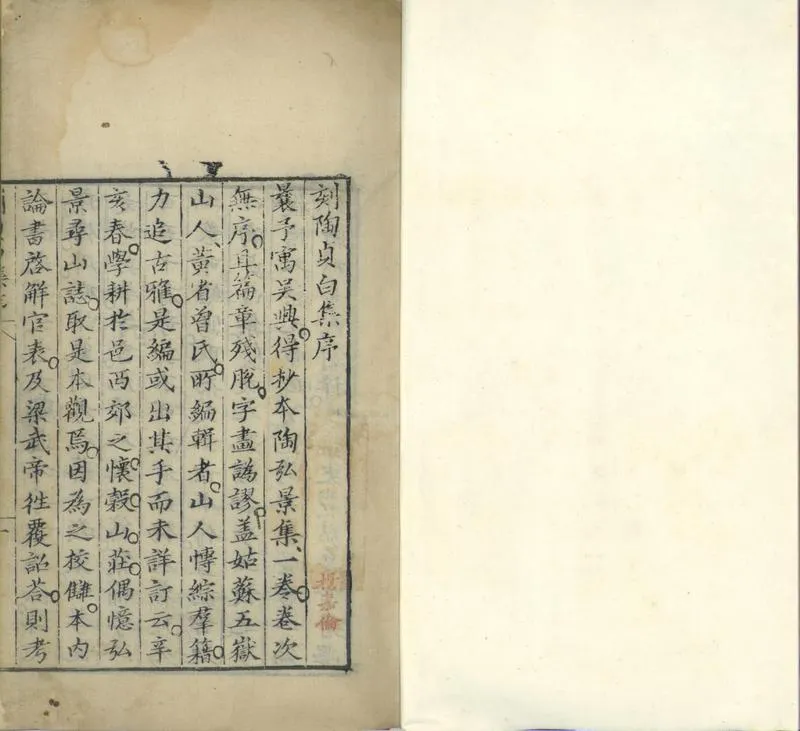 刻陶貞白集序
曩予寓吳興得抄本陶弘景集一卷卷次
無序且篇章殘脫字畫譌謬蓋姑蘇五嶽
山人黃省曾氏所編輯者山人博綜羣籍
力追古雅是編或出其手而未詳訂云辛
亥春學耕於邑西郊之懷榖山莊偶憶弘
景尋山誌取是本觀焉因為之校讎本內
論書啓解官表及梁武帝往覆詔荅則考